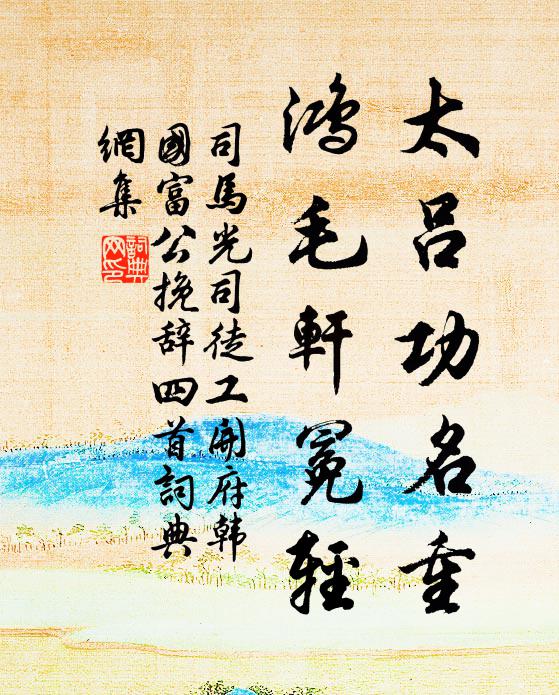 太呂功名重
鴻毛軒冕輕
司馬光司徒工開府韩
國富公挽辞四首詞典
網集
詞典
网印